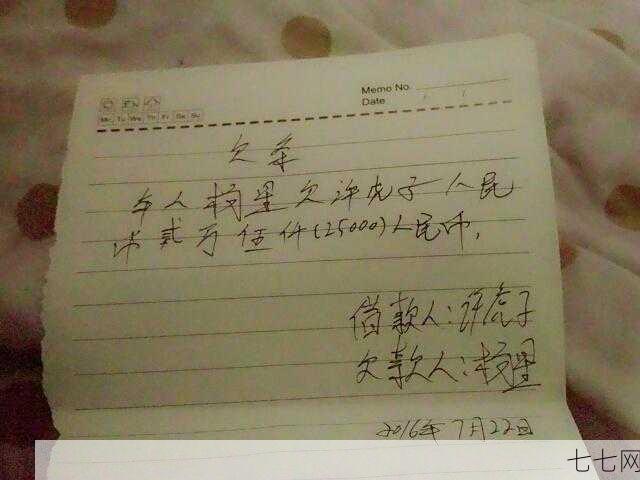 Memo No.
Date
Mo Tu We Th Fr Sa Su
欠条
本人杨星欠许虎子人民
币贰万伍仟(25000)人民币,
借款人:许虎子
欠款人:杨星
2016年7月22日
七七网